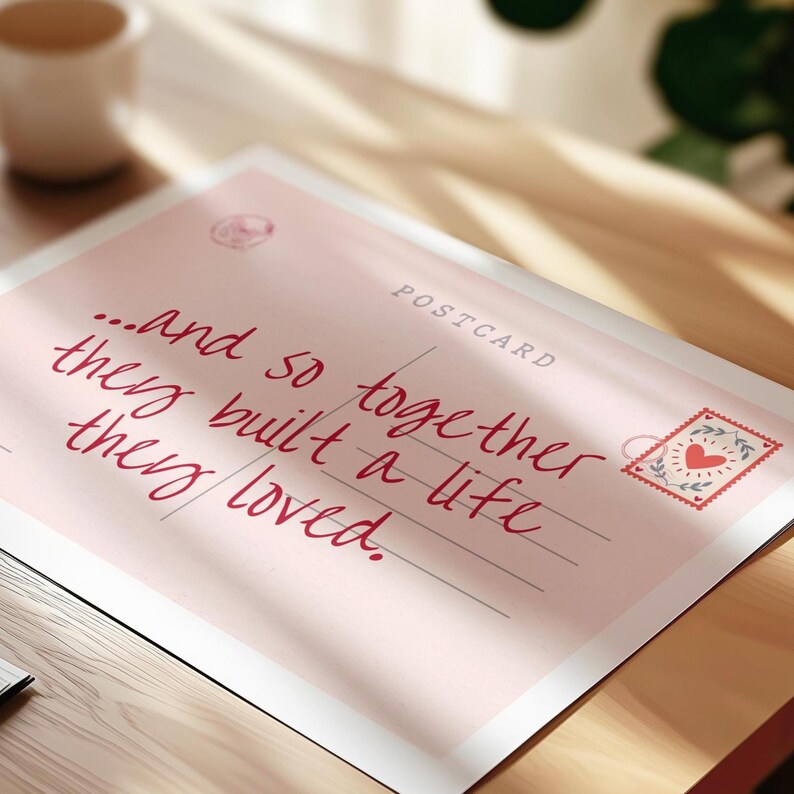 POSTCARD
...and so together
they built a life
they loved.